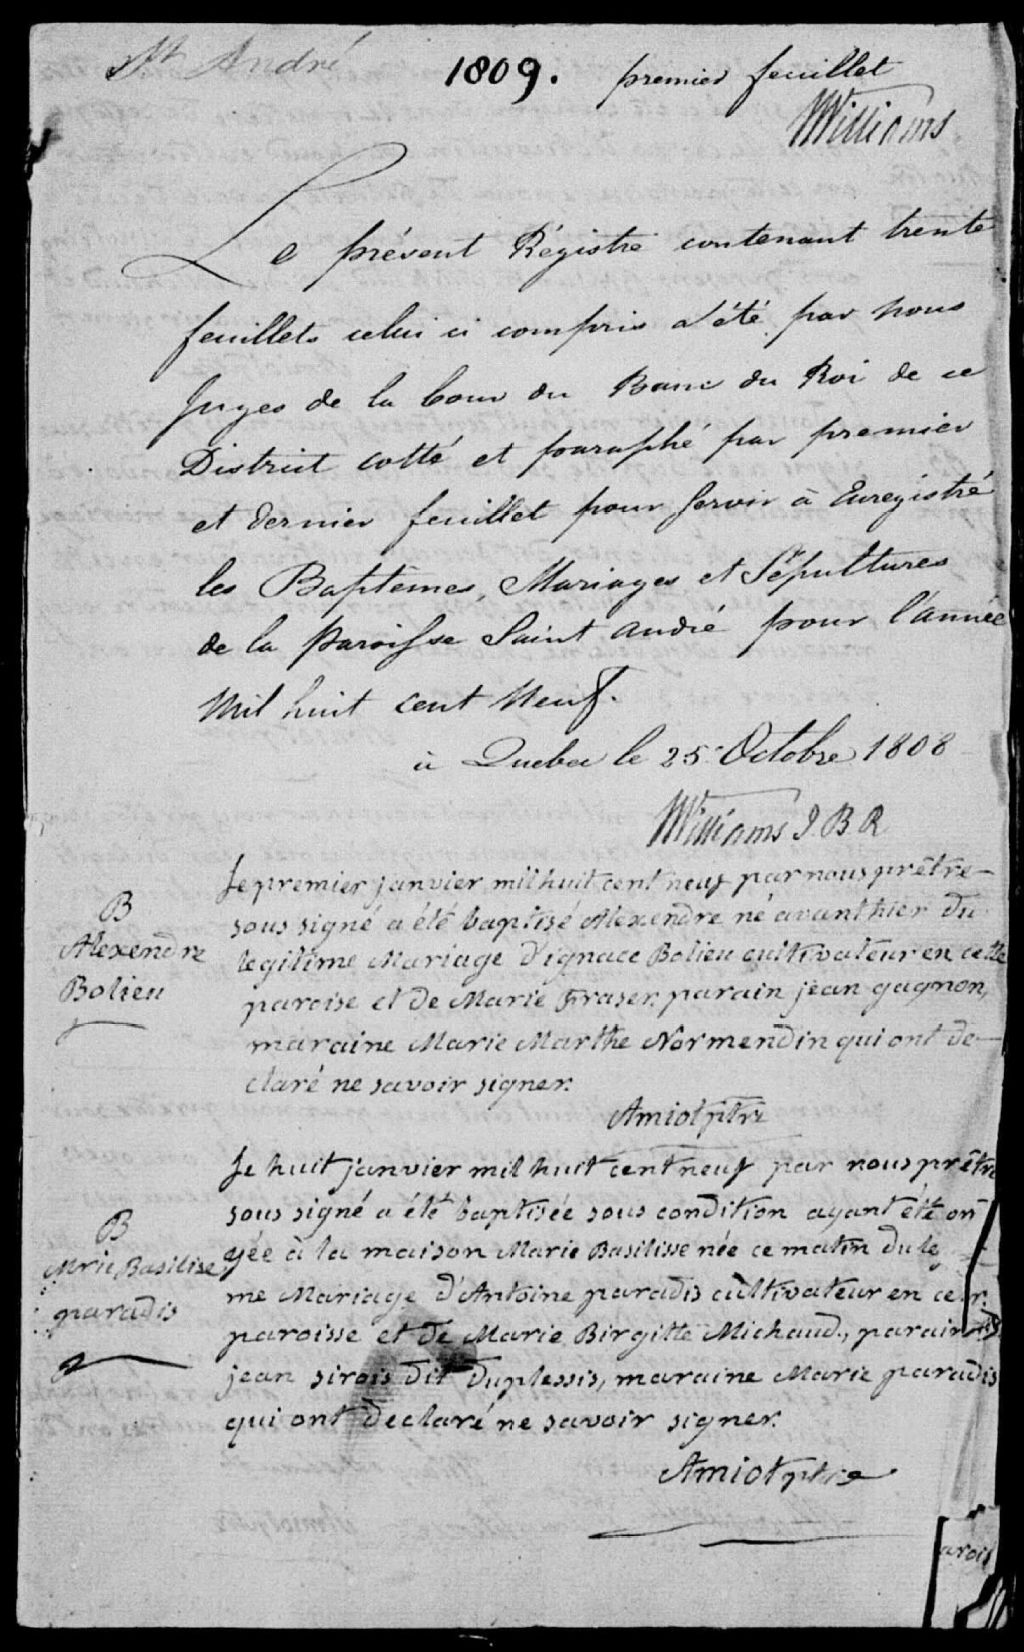 St André
1809. premier feuillet
Williams
Le présent Régistre contenant trente
feuillets celui ci compris a été par nous
Juges de la Cour du Banc du Roi de ce
District cotté et paraphé par premier
et dernier feuillet pour servir à Enregistré
les Baptêmes, Mariages et Sépultures
de la Paroisse Saint André pour l'année
Mil huit cent Neuf.
à Quebec le 25 Octobre 1808
Williams J.B.R
B
Alexendre
Bolieu
Le premier janvier mil huit cent neuf par nous prêtre
sous signé a été baptisé Alexendre né avant hier du
legitime Mariage d'ignace Bolieu cultivateur en cette
paroise et de Marie Fraser. parain jean gagnon,
maraine Marie Marthe Normendin qui ont de-
claré ne savoir signer.
Amiot ptre
B
Mrie Basilise
paradis
Le huit janvier mil huit cent neuf par nous prêtre
sous signé a été baptisée sous condition ayant été on
yée à la maison Marie Basilisse née ce matin du le
me Mariage d'Antoine paradis cultivateur en ce
paroisse et de Marie Birgitte Michaud, parain
jean sirois dit Duplessis, maraine Marie paradis
qui ont declaré ne savoir signer.
Amiot ptre
arois